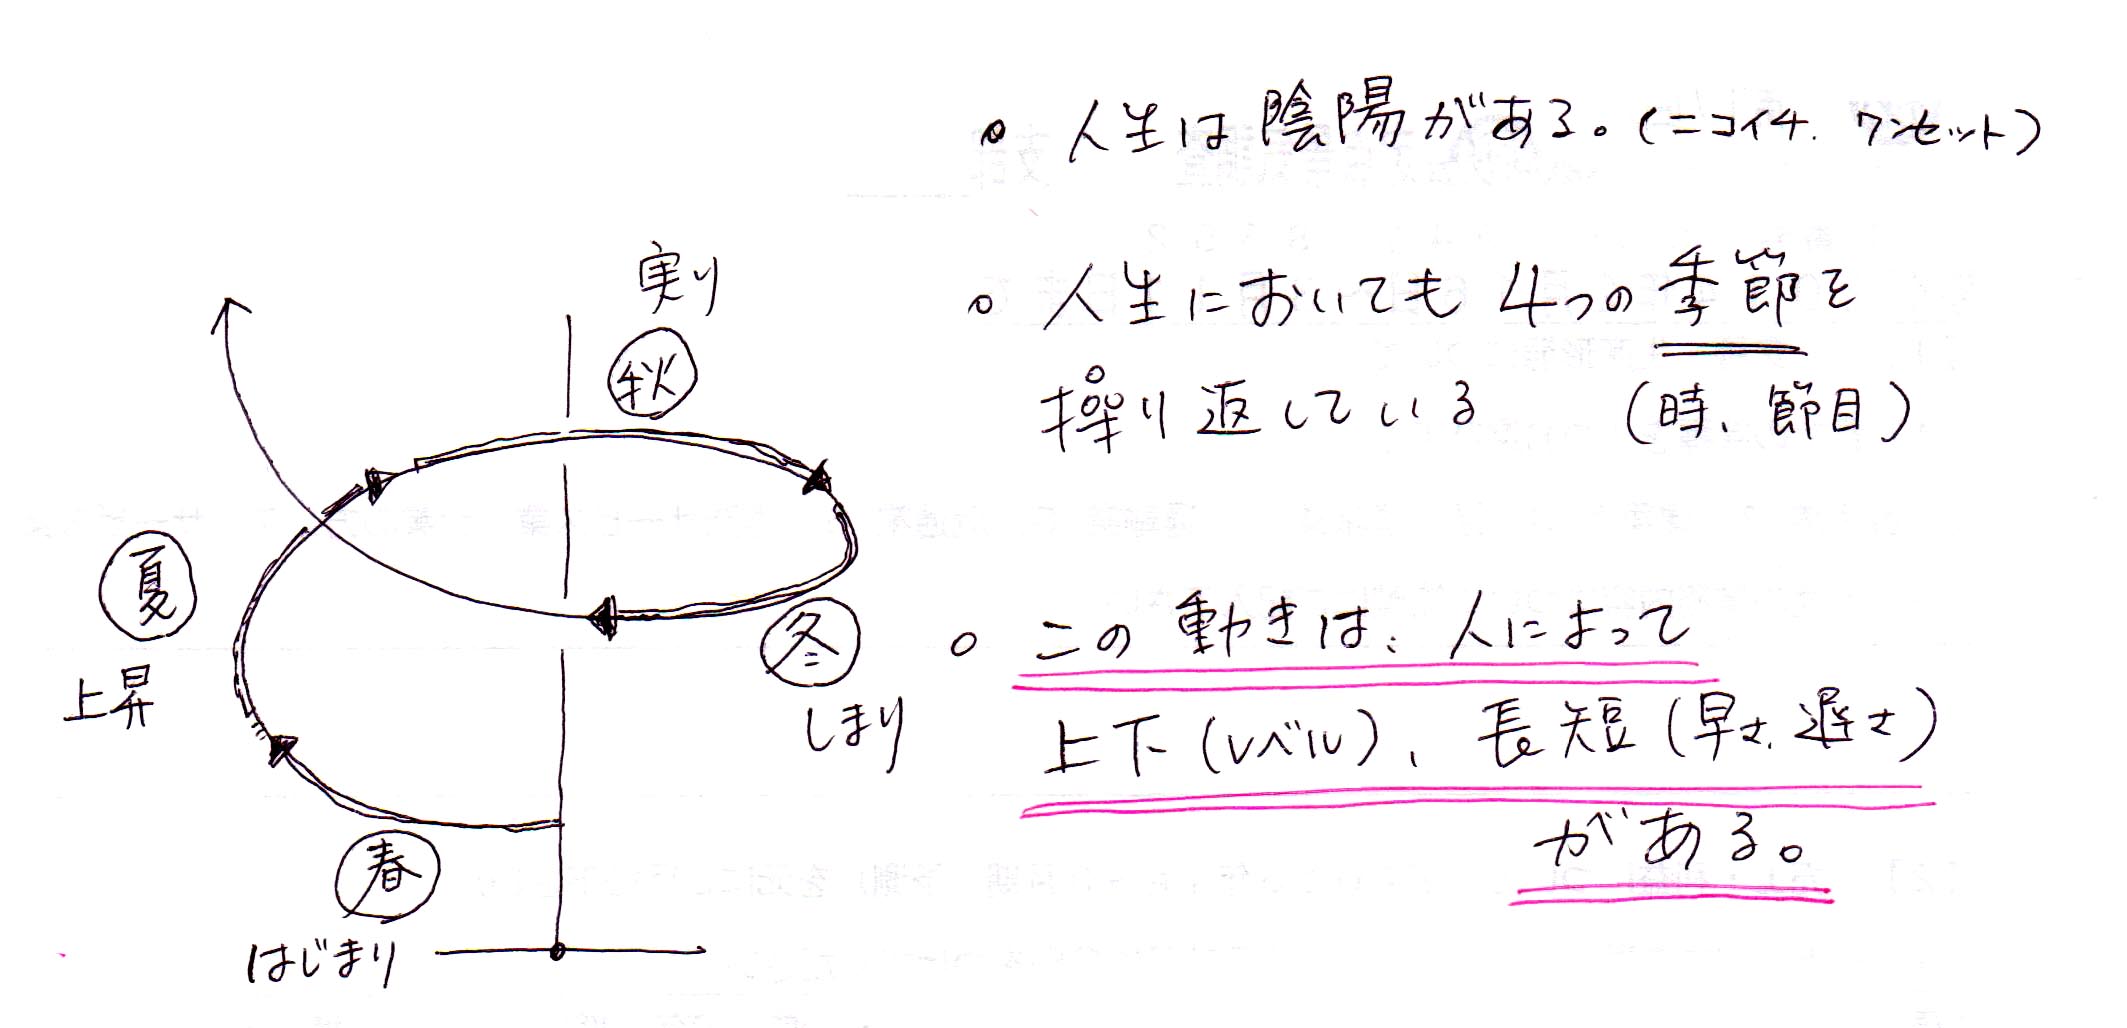 人生は陰陽がある。(ニコイチ. ワンセット)
人生においても 4つの季節を
操り返している (時、節目)
この動きは、人によって
上下(レベル)、長短(早さ、遅さ)
がある。
実り
秋
夏
上昇
冬
しまり
春
はじまり